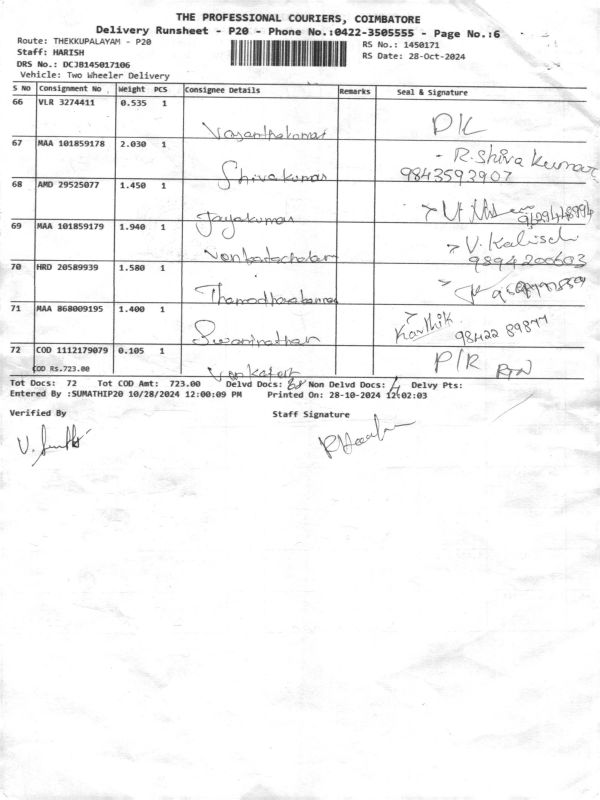 THE PROFESSIONAL COURIERS, COIMBATORE
Delivery Runsheet - P20 - Phone No.:0422-3505555 - Page No.:6
Route: THEKKUPALAYAM - P20
RS No.: 1450171
Staff: HARISH
RS Date: 28-Oct-2024
DRS No.: DCJB145017106
Vehicle: Two Wheeler Delivery
S NO Consignment No Weight PCS Consignee Details Remarks Seal & Signature
66 VLR 3274411 0.535 1
Vasanthakumar DK
67 MAA 101859178 2.030 1
- R. Shiva Kumar
Shivakumar 9843593907
68 AMD 29525077 1.450 1
Jayakumar
69 MAA 101859179 1.940 1
Venkatachalam V. Kalisch
9894200603
70 HRD 20589939 1.580 1
Thamodharakannan
71 MAA 868009195 1.400 1
Swaminathan Karthik 98422 89877
72 COD 1112179079 0.105 1
COD RS.723.00 Venkatesh P/R RTN
Tot Docs: 72 Tot COD Amt: 723.00 Delvd Docs: 68 Non Delvd Docs: 4 Delvy Pts:
Entered By :SUMATHIP20 10/28/2024 12:00:09 PM Printed On: 28-10-2024 12:02:03
Verified By Staff Signature